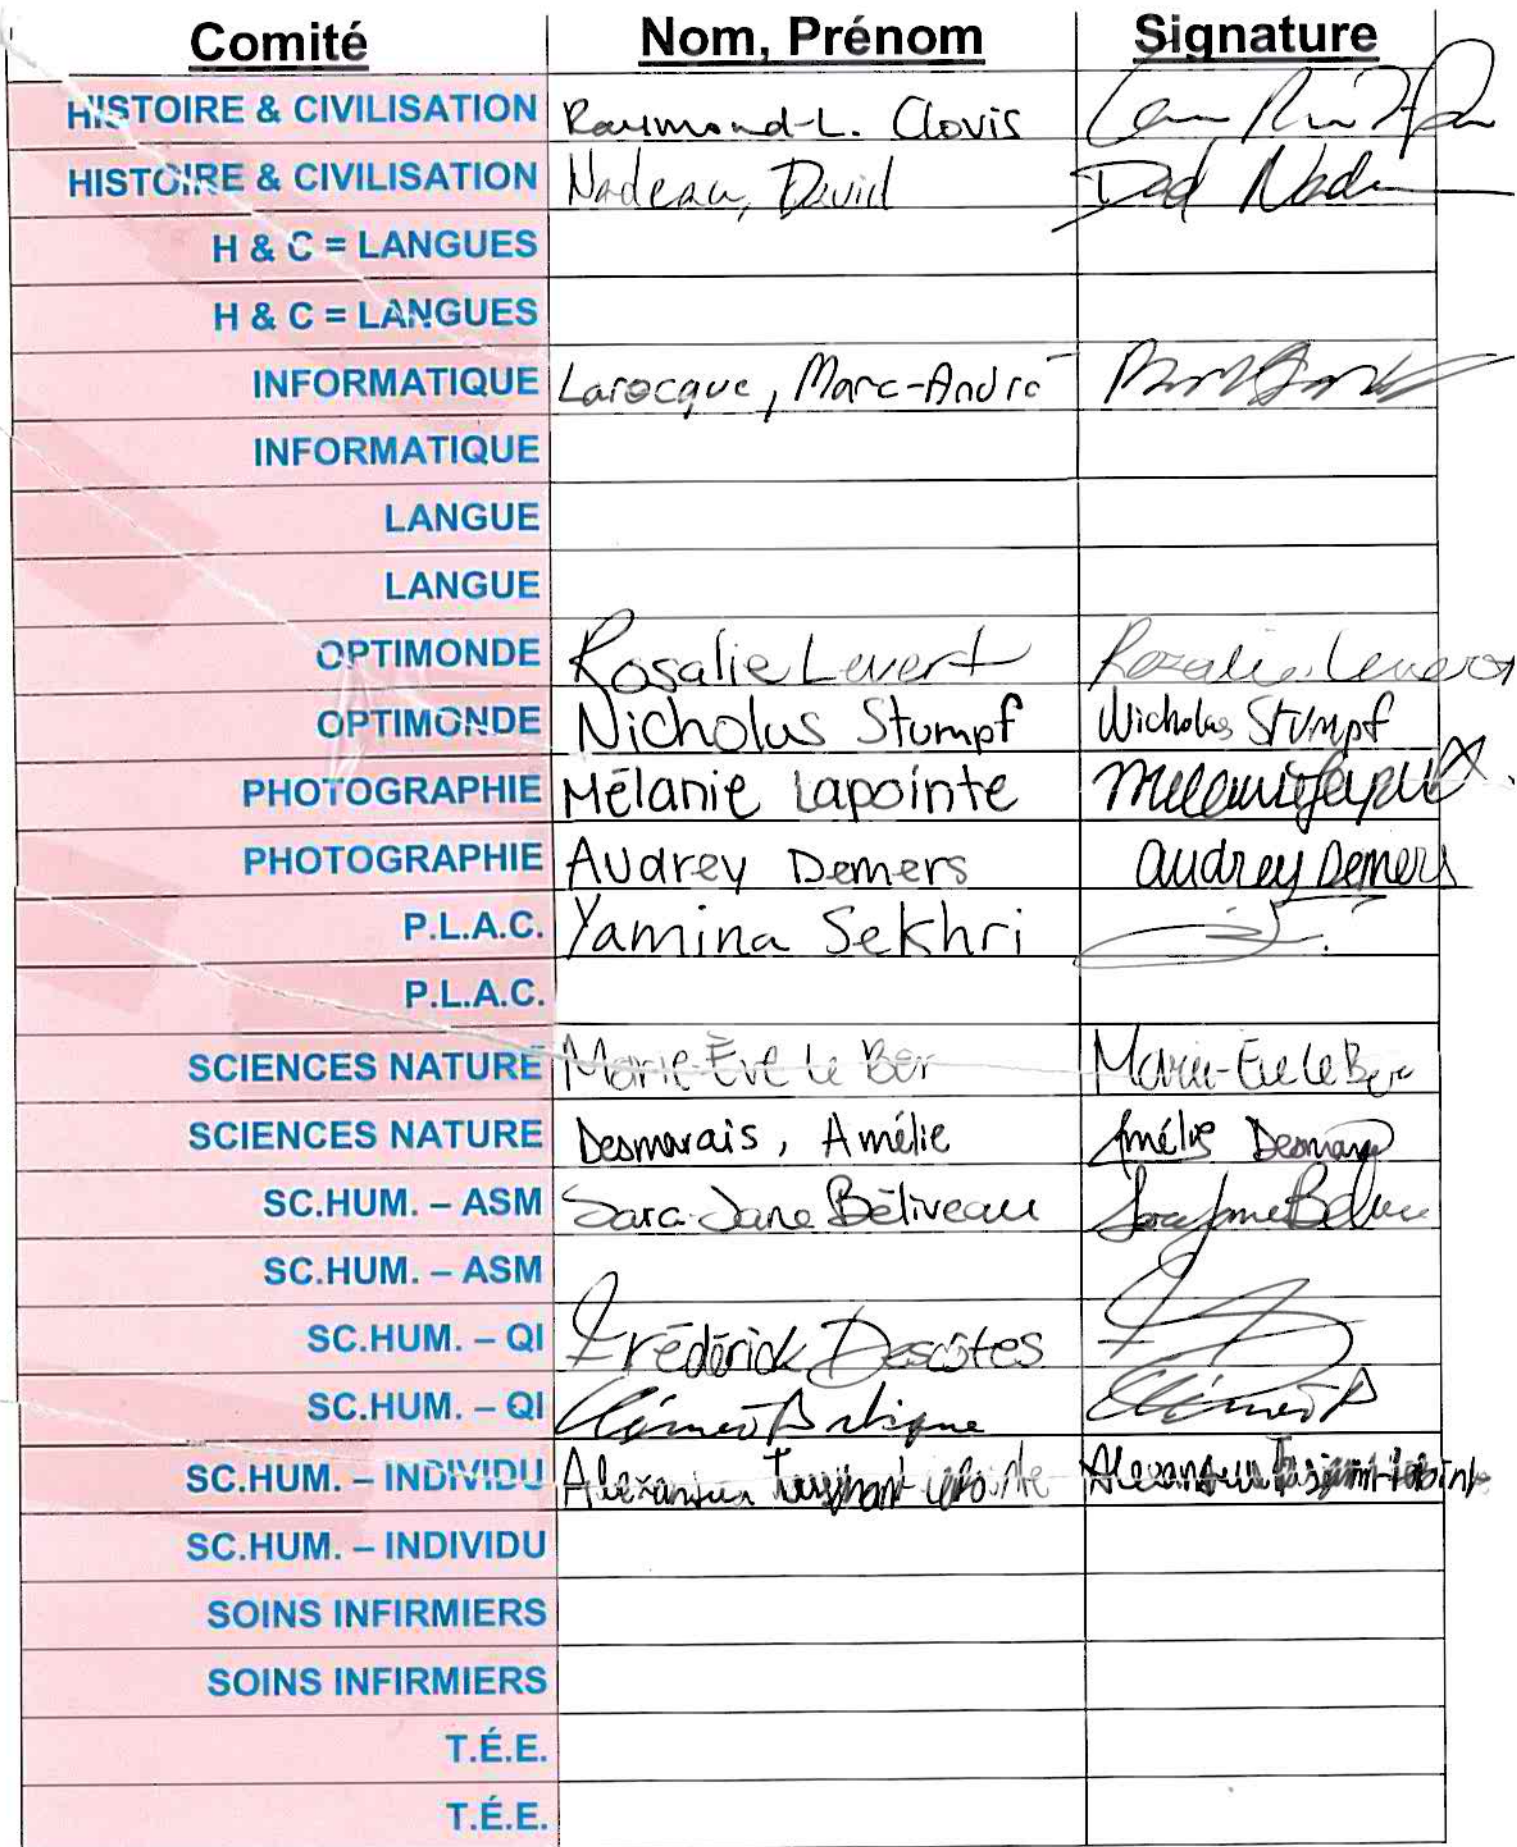 Comité Nom, Prénom Signature
HISTOIRE & CIVILISATION Raymond-L. Clovis
HISTOIRE & CIVILISATION Nadeau, David Dad Nad
H & C = LANGUES
H & C = LANGUES
INFORMATIQUE Larocque, Marc-André
INFORMATIQUE
LANGUE
LANGUE
OPTIMONDE Rosalie Levert Rosalie Levert
OPTIMONDE Nicholas Stumpf Nicholas Stumpf
PHOTOGRAPHIE Mélanie Lapointe
PHOTOGRAPHIE Audrey Demers Audrey Demers
P.L.A.C. Yamina Sekhri
P.L.A.C.
SCIENCES NATURE Marie-Ève Le Ber Marie-Eve Le Ber
SCIENCES NATURE Desmarais, Amélie Amélie Desmarais
SC.HUM. – ASM Sara-Jane Béliveau
SC.HUM. – ASM
SC.HUM. – QI Frédérick Descôtes
SC.HUM. – QI
SC.HUM. – INDIVIDU
SC.HUM. – INDIVIDU
SOINS INFIRMIERS
SOINS INFIRMIERS
T.É.E.
T.É.E.